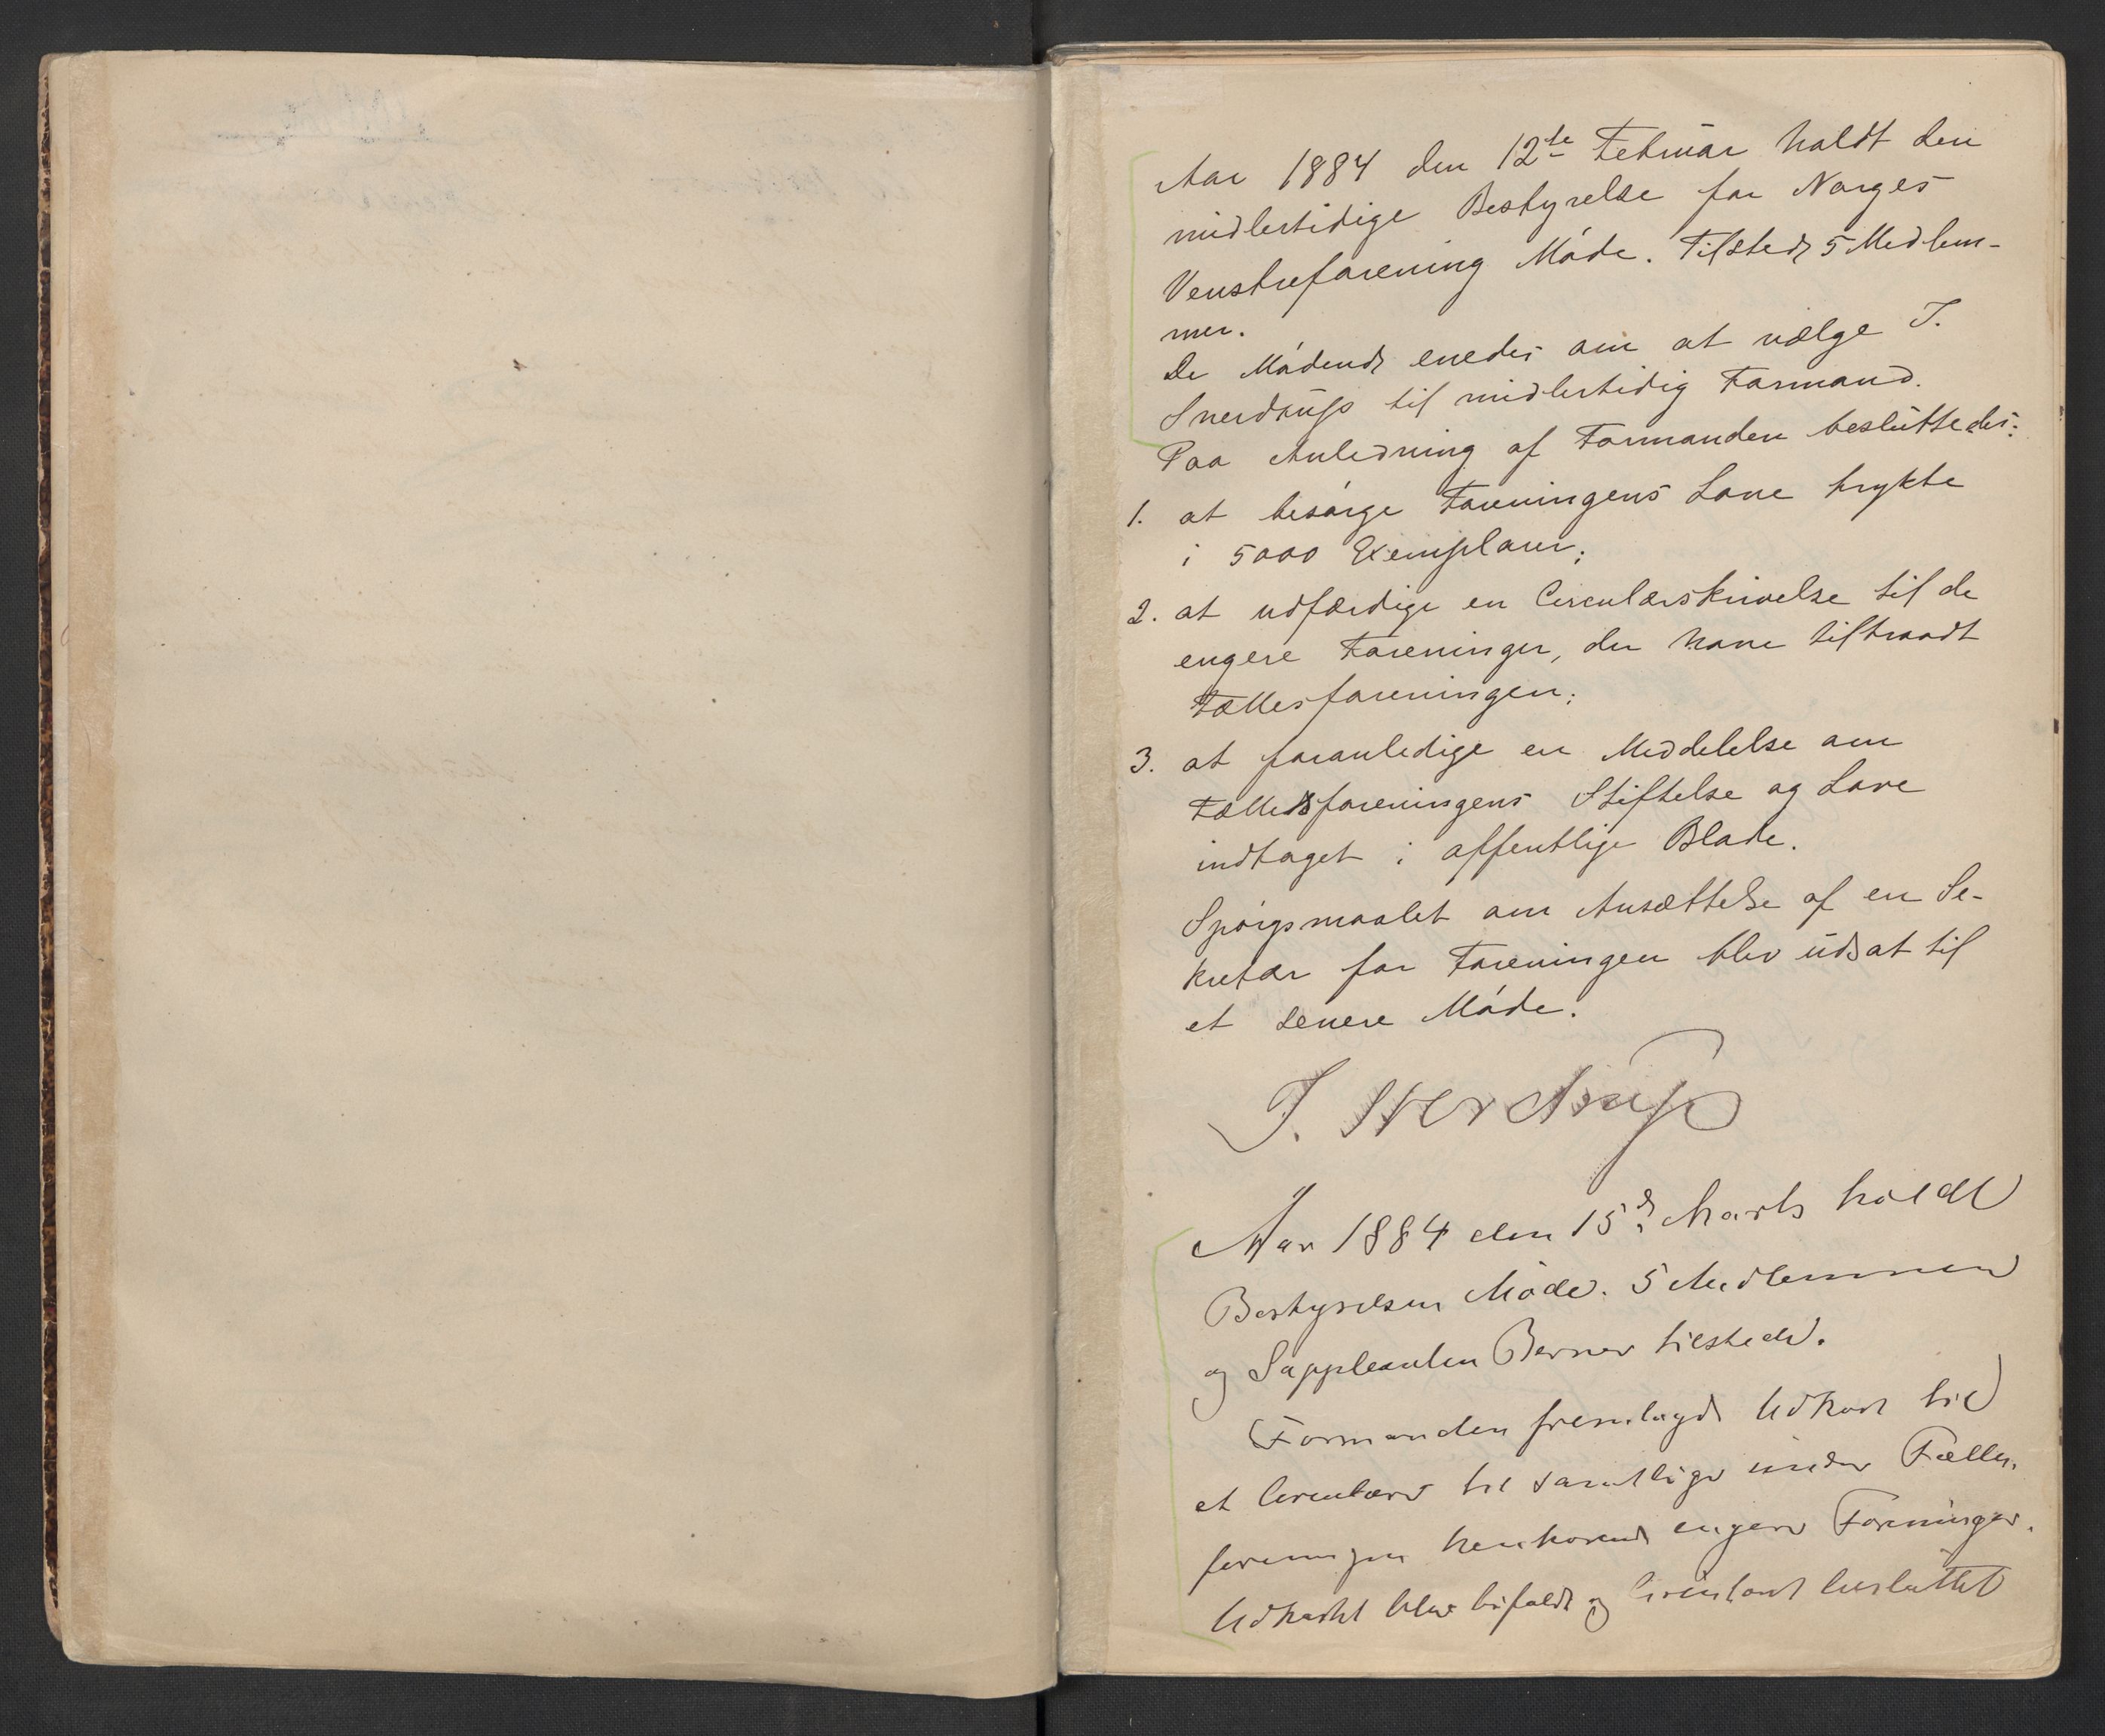 Aar 1884 den 12te Februar holdt den
midlertidige Bestyrelse for Norges
Venstreforening Møde. Tilstede 5 Medlem-
mer.
De Mødende enedes om at vælge J.
Sverdrup til midlertidig Formand.
Paa Anledning af Formanden besluttedes:
1. at besørge Foreningens Love trykte
i 5000 Exemplarer;
2. at udfærdige en Circulærskrivelse til de
engere Foreninger, der have tiltraadt
Fællesforeningen;
3. at foranledige en Meddelelse om
Fællesforeningens Stiftelse og Love
indtaget i offentlige Blade.
Spørgsmaalet om Ansættelse af en Se-
kretær for Foreningen blev udsat til
et senere Møde.
J. Sverdrup
Aar 1884 den 15de Marts holdt
Bestyrelsen Møde. 5 Medlemmer
og Suppleanten Berner tilstede.
Formanden fremlagde Udkast til
et Circulære til samtlige under Fælles-
foreningen henhørende engere Foreninger.
Udkastet blev bifaldt og Circulæret besluttet